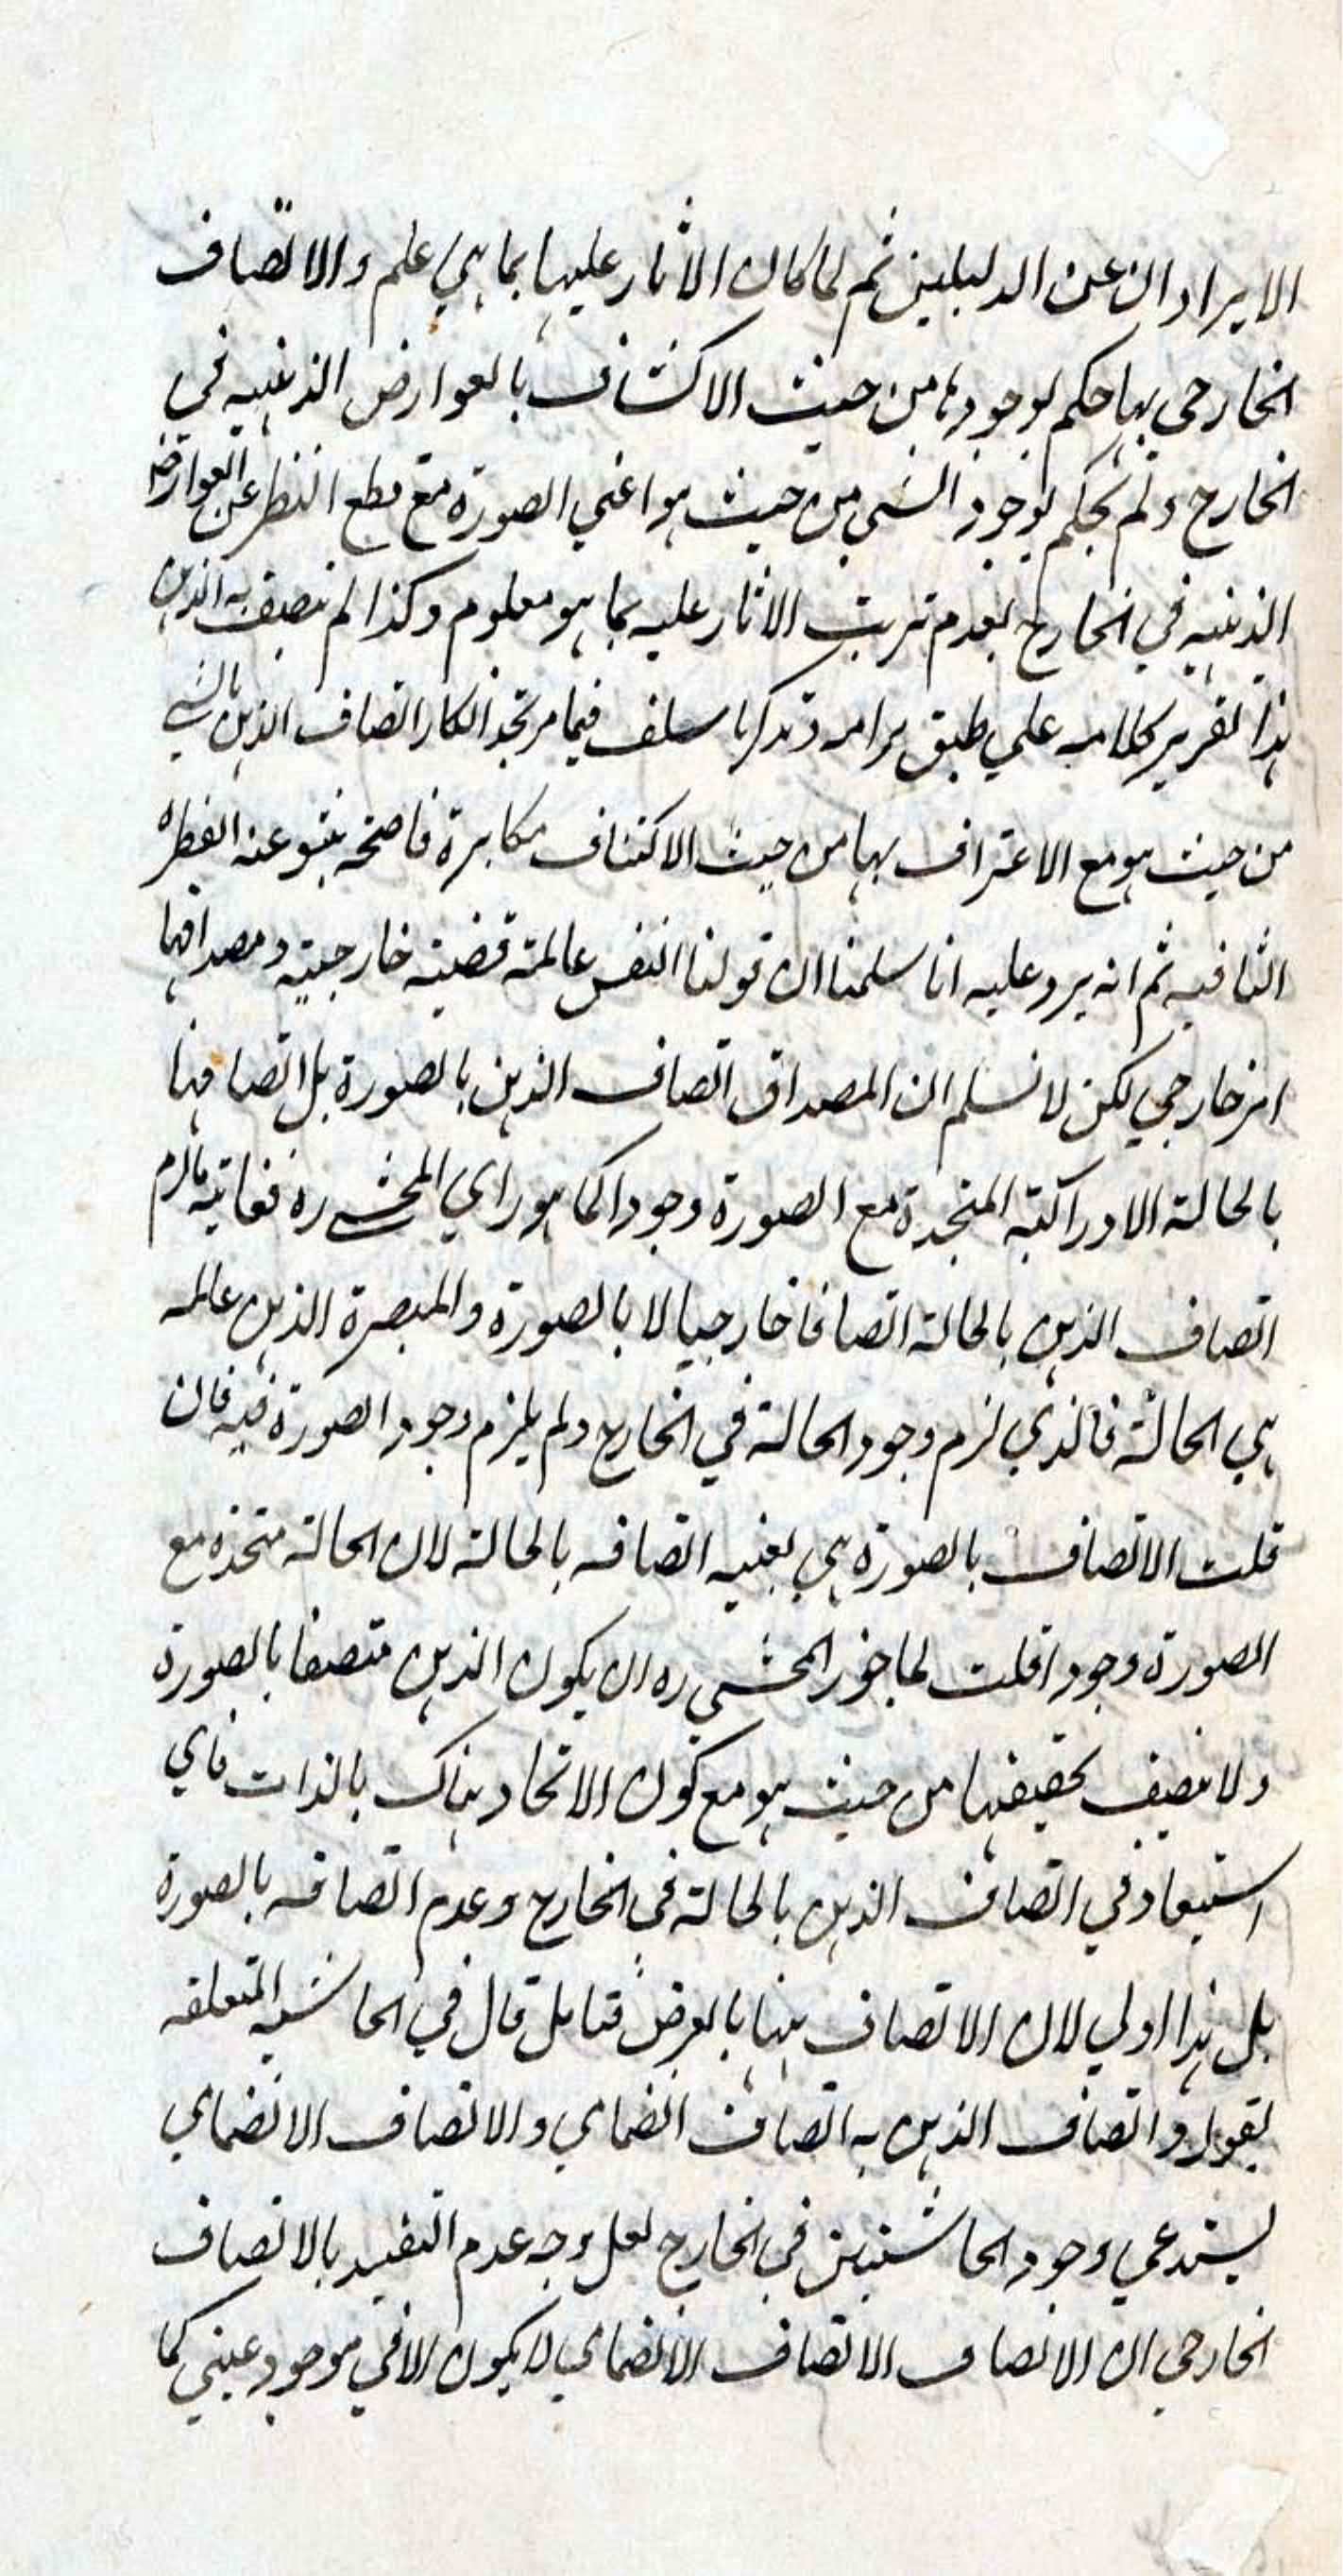 الايرادان عن الدليلين ثم لما كان الاثار عليها بما هي علم والاتصاف
الخارجي بها حكم بوجودها من حيث الاكتناف بالعوارض الذهنيه في
الخارج ولم يحكم بوجود الشي من حيث هو اعني الصورة مع قطع النظر عن العوارض
الذهنيه في الخارج لعدم ترتب الاثار عليه بما هو معلوم وكذا لم يتصف به الذهن
هذا تقرير كلامه علي طبق مرامه وتذكر ما سلف فيما مر تجد انكار اتصاف الذهن بالشي
من حيث هو مع الاعتراف بها من حيث الاكتناف مكابرة فاضحه ينبو عنه الفطرة
الثاقبه ثم انه يرد عليه انا سلمنا ان قولنا النفس عالمة قضية خارجية ومصداقها
امر خارجي لكن لا نسلم ان المصداق اتصاف الذهن بالصورة بل اتصافها
بالحالة الادراكية المتحدة مع الصورة وجودا كما هو راي المحشي ره فغاية ما لزم
اتصاف الذهن بالحالة اتصافا خارجيا لا بالصورة والمبصرة الذهن عالمه
هي الحالة فالذي لزم وجود الحالة في الخارج ولم يلزم وجود الصورة فيه فان
قلت الاتصاف بالصورة هي بعينه اتصافه بالحالة لان الحالة متحدة مع
الصورة وجودا قلت لما جوز المحشي ره ان يكون الذهن متصفا بالصورة
ولا يتصف بحقيقتها من حيث هو مع كون الاتحاد هناك بالذات فاي
استبعاد في اتصاف الذهن بالحالة في الخارج وعدم اتصافه بالصورة
بل هذا اولي لان الاتصاف هنا بالعرض فتامل قال في الحاشيه المتعلقه
بقوله واتصاف الذهن به اتصاف انضمامي والاتصاف الانضمامي
يستدعي وجود الحاشيتين في الخارج لعل وجه عدم التقييد بالاتصاف
الخارجي ان الاتصاف الاتصاف الانضمامي لا يكون الا في موجود عيني كما